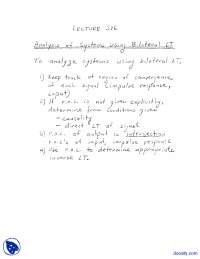 LECTURE 26
Analysis of Systems using Bilateral LT
To analyze systems using bilateral LT,
1) Keep track of region of convergence
of each signal (impulse response,
input)
2) If r.o.c. is not given explicitly,
determine from conditions given
- causality
- direct LT of signal
3) r.o.c. of output is intersection
r.o.c.'s of input, impulse response
4) Use r.o.c. to determine appropriate
inverse LT.
docsity.com